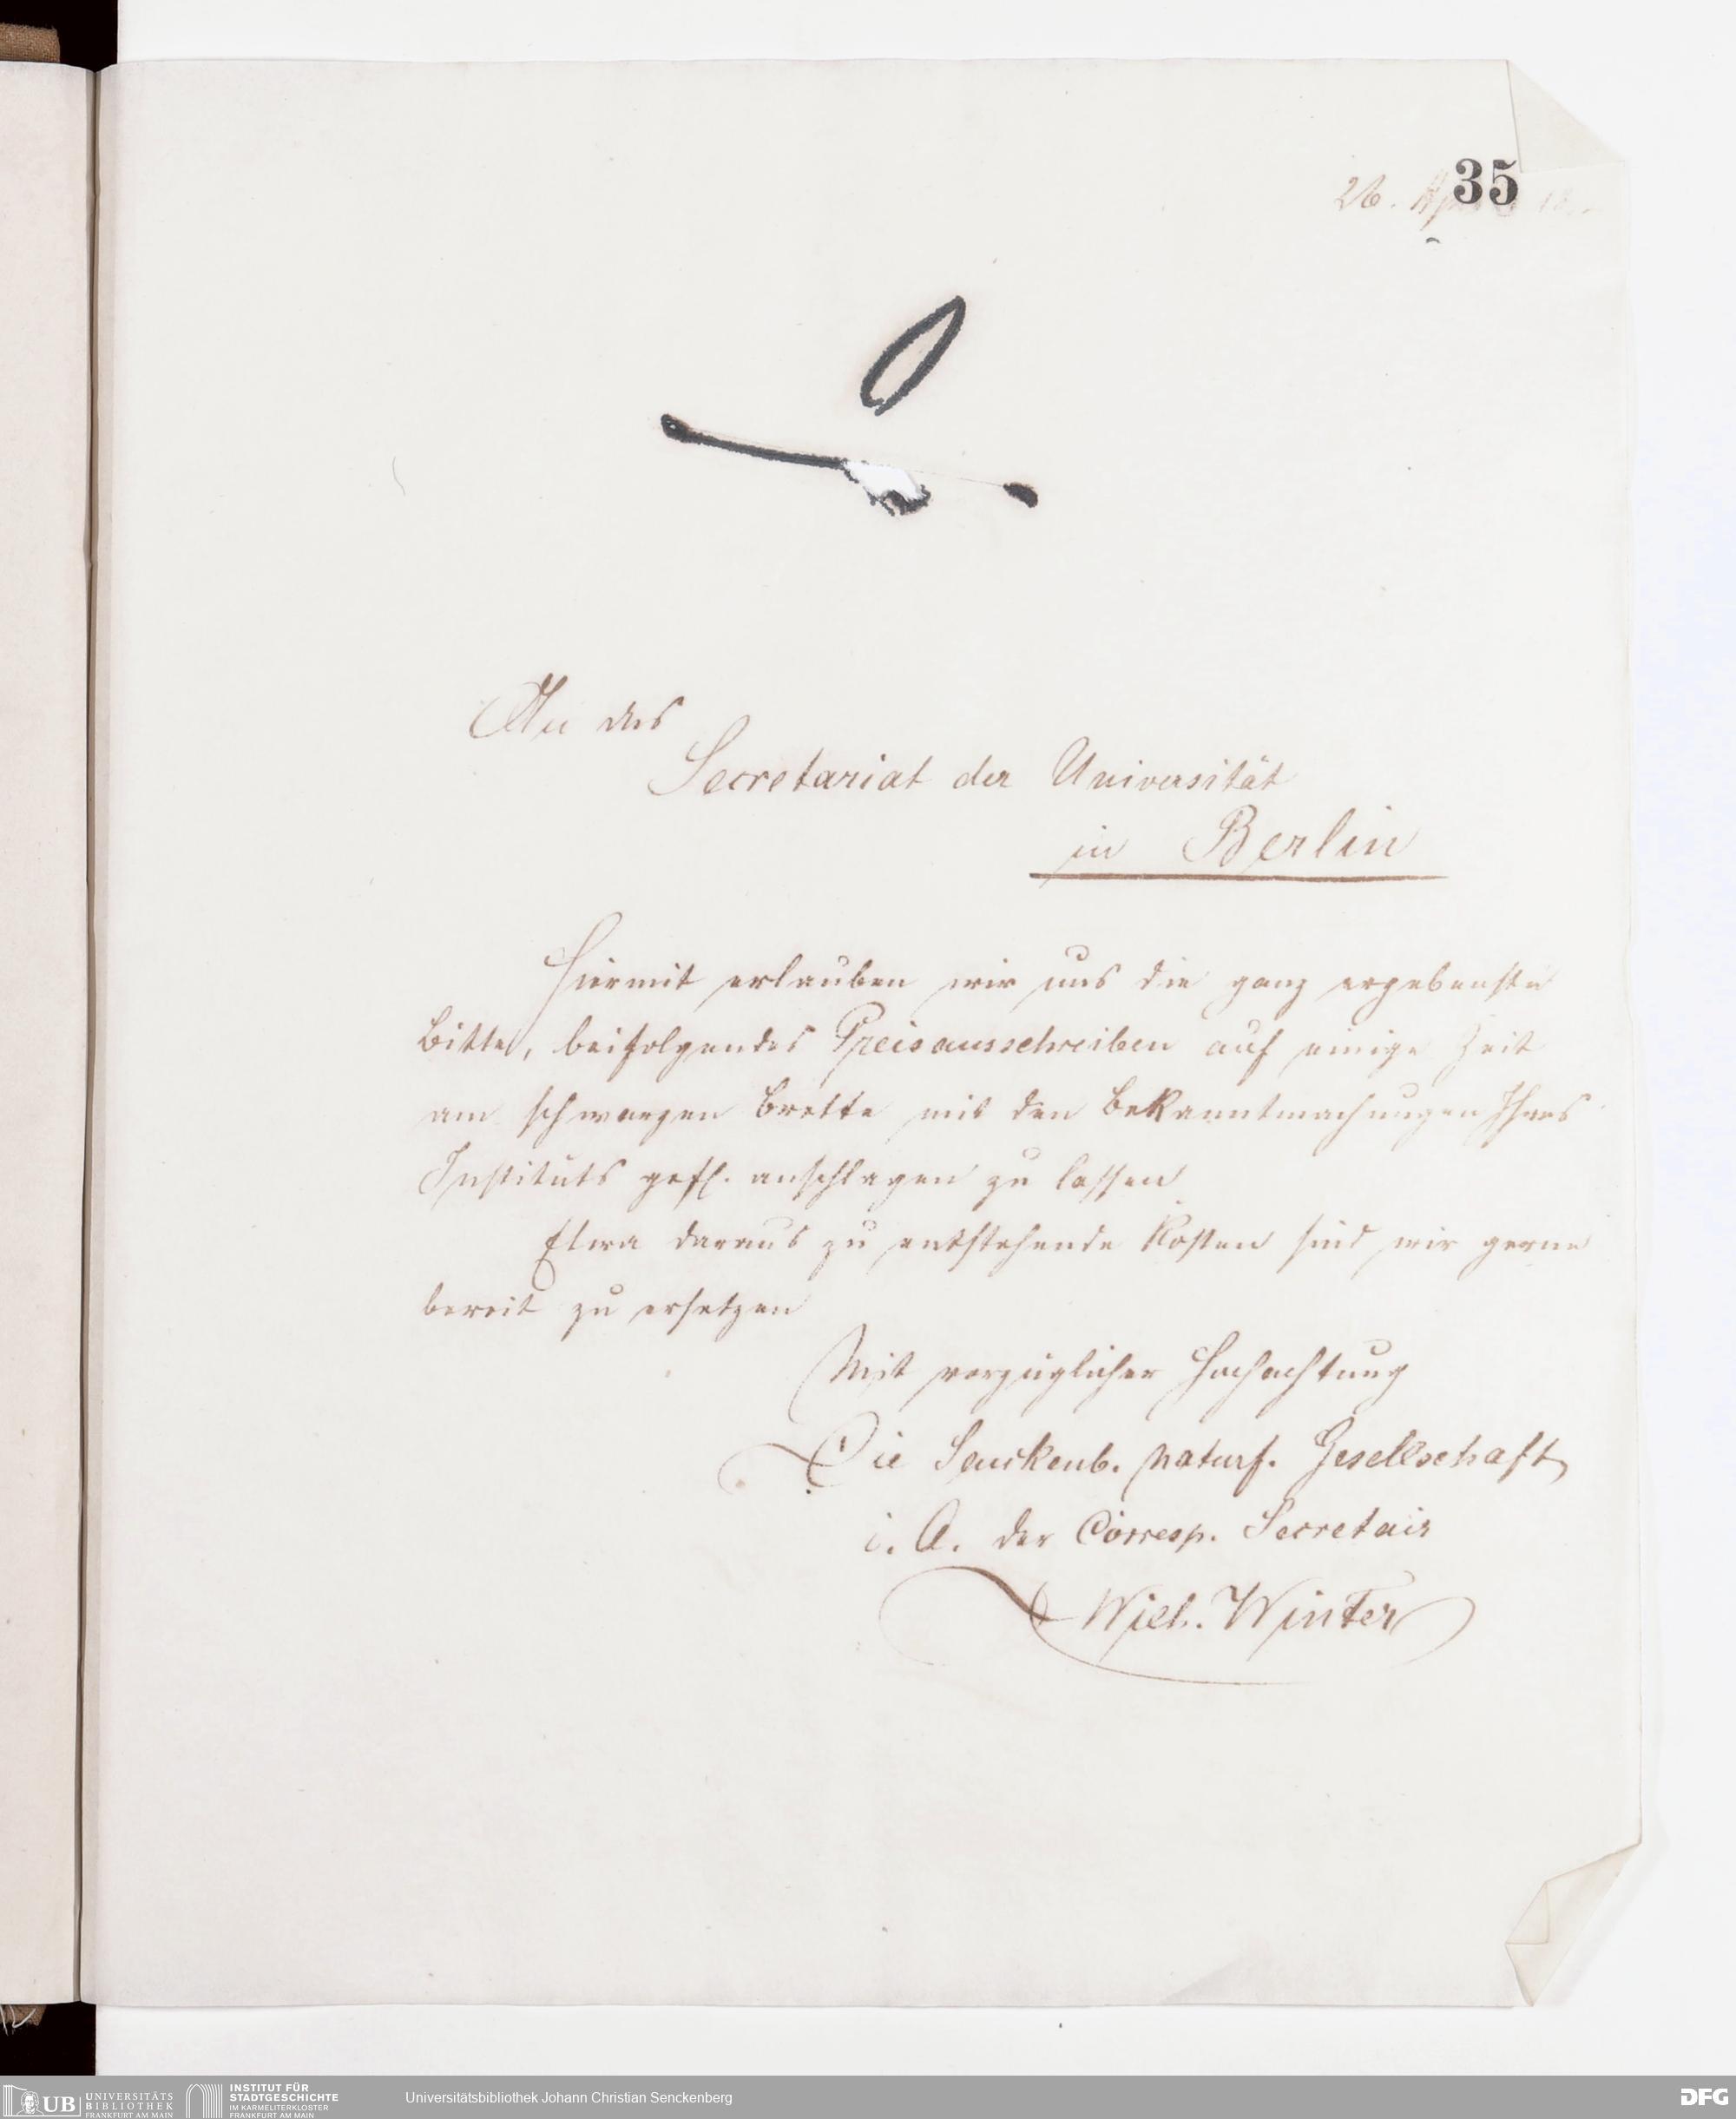 35
26.
An das
Secretariat der Universität
in Berlin
Hiermit erlauben wir uns die ganz ergebenste
Bitte, beifolgendes Preisausschreiben auf einige Zeit
am schwarzen Brette mit den Bekanntmachungen Ihres
Instituts gefl. anschlagen zu lassen
Etwa daraus zu entstehende Kosten sind wir gerne
bereit zu ersetzen
Mit vorzüglicher Hochachtung
Die Senckenb. naturf. Gesellschaft
i. A. der Corresp. Secretair
Wilh. Winter
UB UNIVERSITÄTS
BIBLIOTHEK
FRANKFURT AM MAIN
INSTITUT FÜR
STADTGESCHICHTE
IM KARMELITERKLOSTER
FRANKFURT AM MAIN
Universitätsbibliothek Johann Christian Senckenberg
DFG